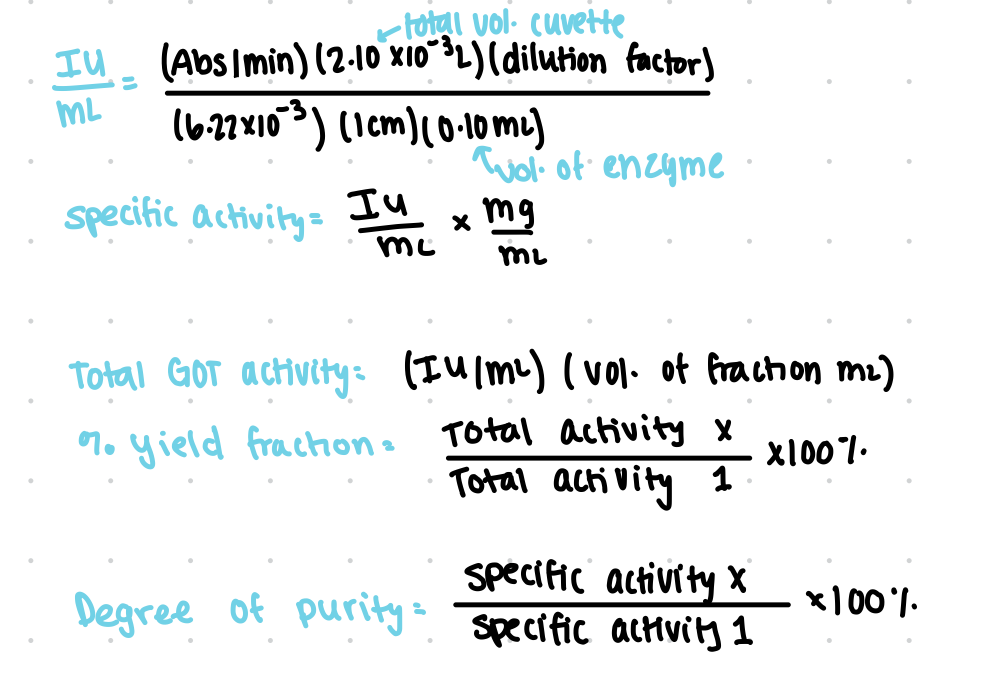 total vol. cuvette
IU/mL = (Abs/min)(2.10 x10⁻³L)(dilution factor)
(6.22x10⁻³) (1cm)(0.10mL)
vol. of enzyme
specific activity = IU/mL x mg/mL
Total GOT activity = (IU/mL) (vol. of fraction mL)
% yield fraction = Total activity x / Total activity 1 x100%
Degree of purity = specific activity x / specific activity 1 x100%